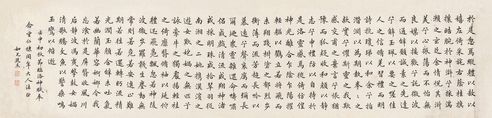 於是忽焉縱體以遨以
嬉左倚采旄右蔭桂旗
攘皓腕於神滸兮采湍
瀨之玄芝余情悅其淑
美兮心振蕩而不怡無
良媒以接歡兮託微波
而通辭願誠素之先達
兮解玉佩以要之嗟佳
人之信修兮羌習禮而明
詩抗瓊珶以和予兮指
潛淵而為期執眷眷之
款實兮懼斯靈之我
欺感交甫之棄言兮悵
猶豫而狐疑收和顏而靜
志兮申禮防以自持於
是洛靈感焉徙倚彷徨
神光離合乍陰乍陽竦
輕軀以鶴立若將飛而
未翔踐椒塗之郁烈步
蘅薄而流芳超長吟以永
慕兮聲哀厲而彌長爾
迺眾靈雜遝命儔嘯
侶或戲清流或翔神渚
或采明珠或拾翠羽從
南湘之二妃攜漢濱之
游女歎匏瓜之無匹兮
詠牽牛之獨處揚輕袿
之猗靡兮翳修袖以延
佇體迅飛鳧飄忽若神陵
波微步羅襪生塵動無
常則若危若安進止難
期若往若還轉眄流精
光潤玉顏含辭未吐氣
若幽蘭華容婀娜令我
忘餐於是屏翳收風川
后靜波馮夷鳴鼓女媧
清歌騰文魚以警乘鳴
玉鸞以偕逝